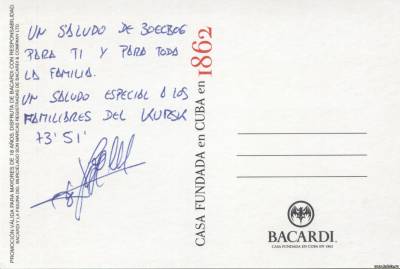 UN SALUDO DE 3OECBOG
PARA TI Y PARA TODA
LA FAMILIA.
UN SALUDO ESPECIAL A LOS
FAMILIARES DEL KURSK
73' 51'
PROMOCIÓN VÁLIDA PARA MAYORES DE 18 AÑOS. DISFRUTA DE BACARDI CON RESPONSABILIDAD.
BACARDI Y LA FIGURA DEL MURCIELAGO SON MARCAS REGISTRADAS DE BACARDI & COMPANY LTD.
CASA FUNDADA en CUBA en 1862
BACARDI.
CASA FUNDADA EN CUBA EN 1862